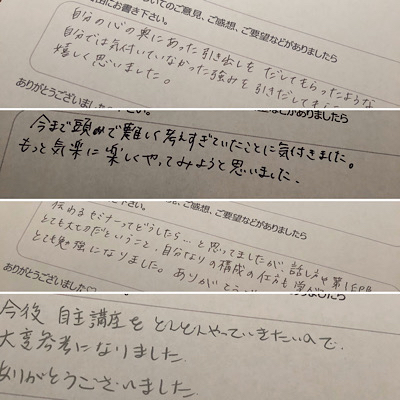 おいてのご意見、ご感想、ご要望などがありましたら
にお書き下さい。
自分の心の奥にあった引き出しをだしてもらったような
自分では気付いていなかった強みを引きだしてもら
嬉しく思いました。
ありがとうございま
などがありましたら
今まで頭の中で難しく考えすぎていたことに気付きました。
もっと気楽に楽しくやってみようと思いました。
ご感想、ご要望などがありましたら
伝わるセミナーってどうしたら…と思ってましたが、話し方や第1印
とても大切だということ、自分なりの構成の仕方も学
とても勉強になりました。ありがとう
ありがとうございました
などがありましたら
今後 自主講座をどんどんやっていきたいので、
大変参考になりました。
ありがとうございました。